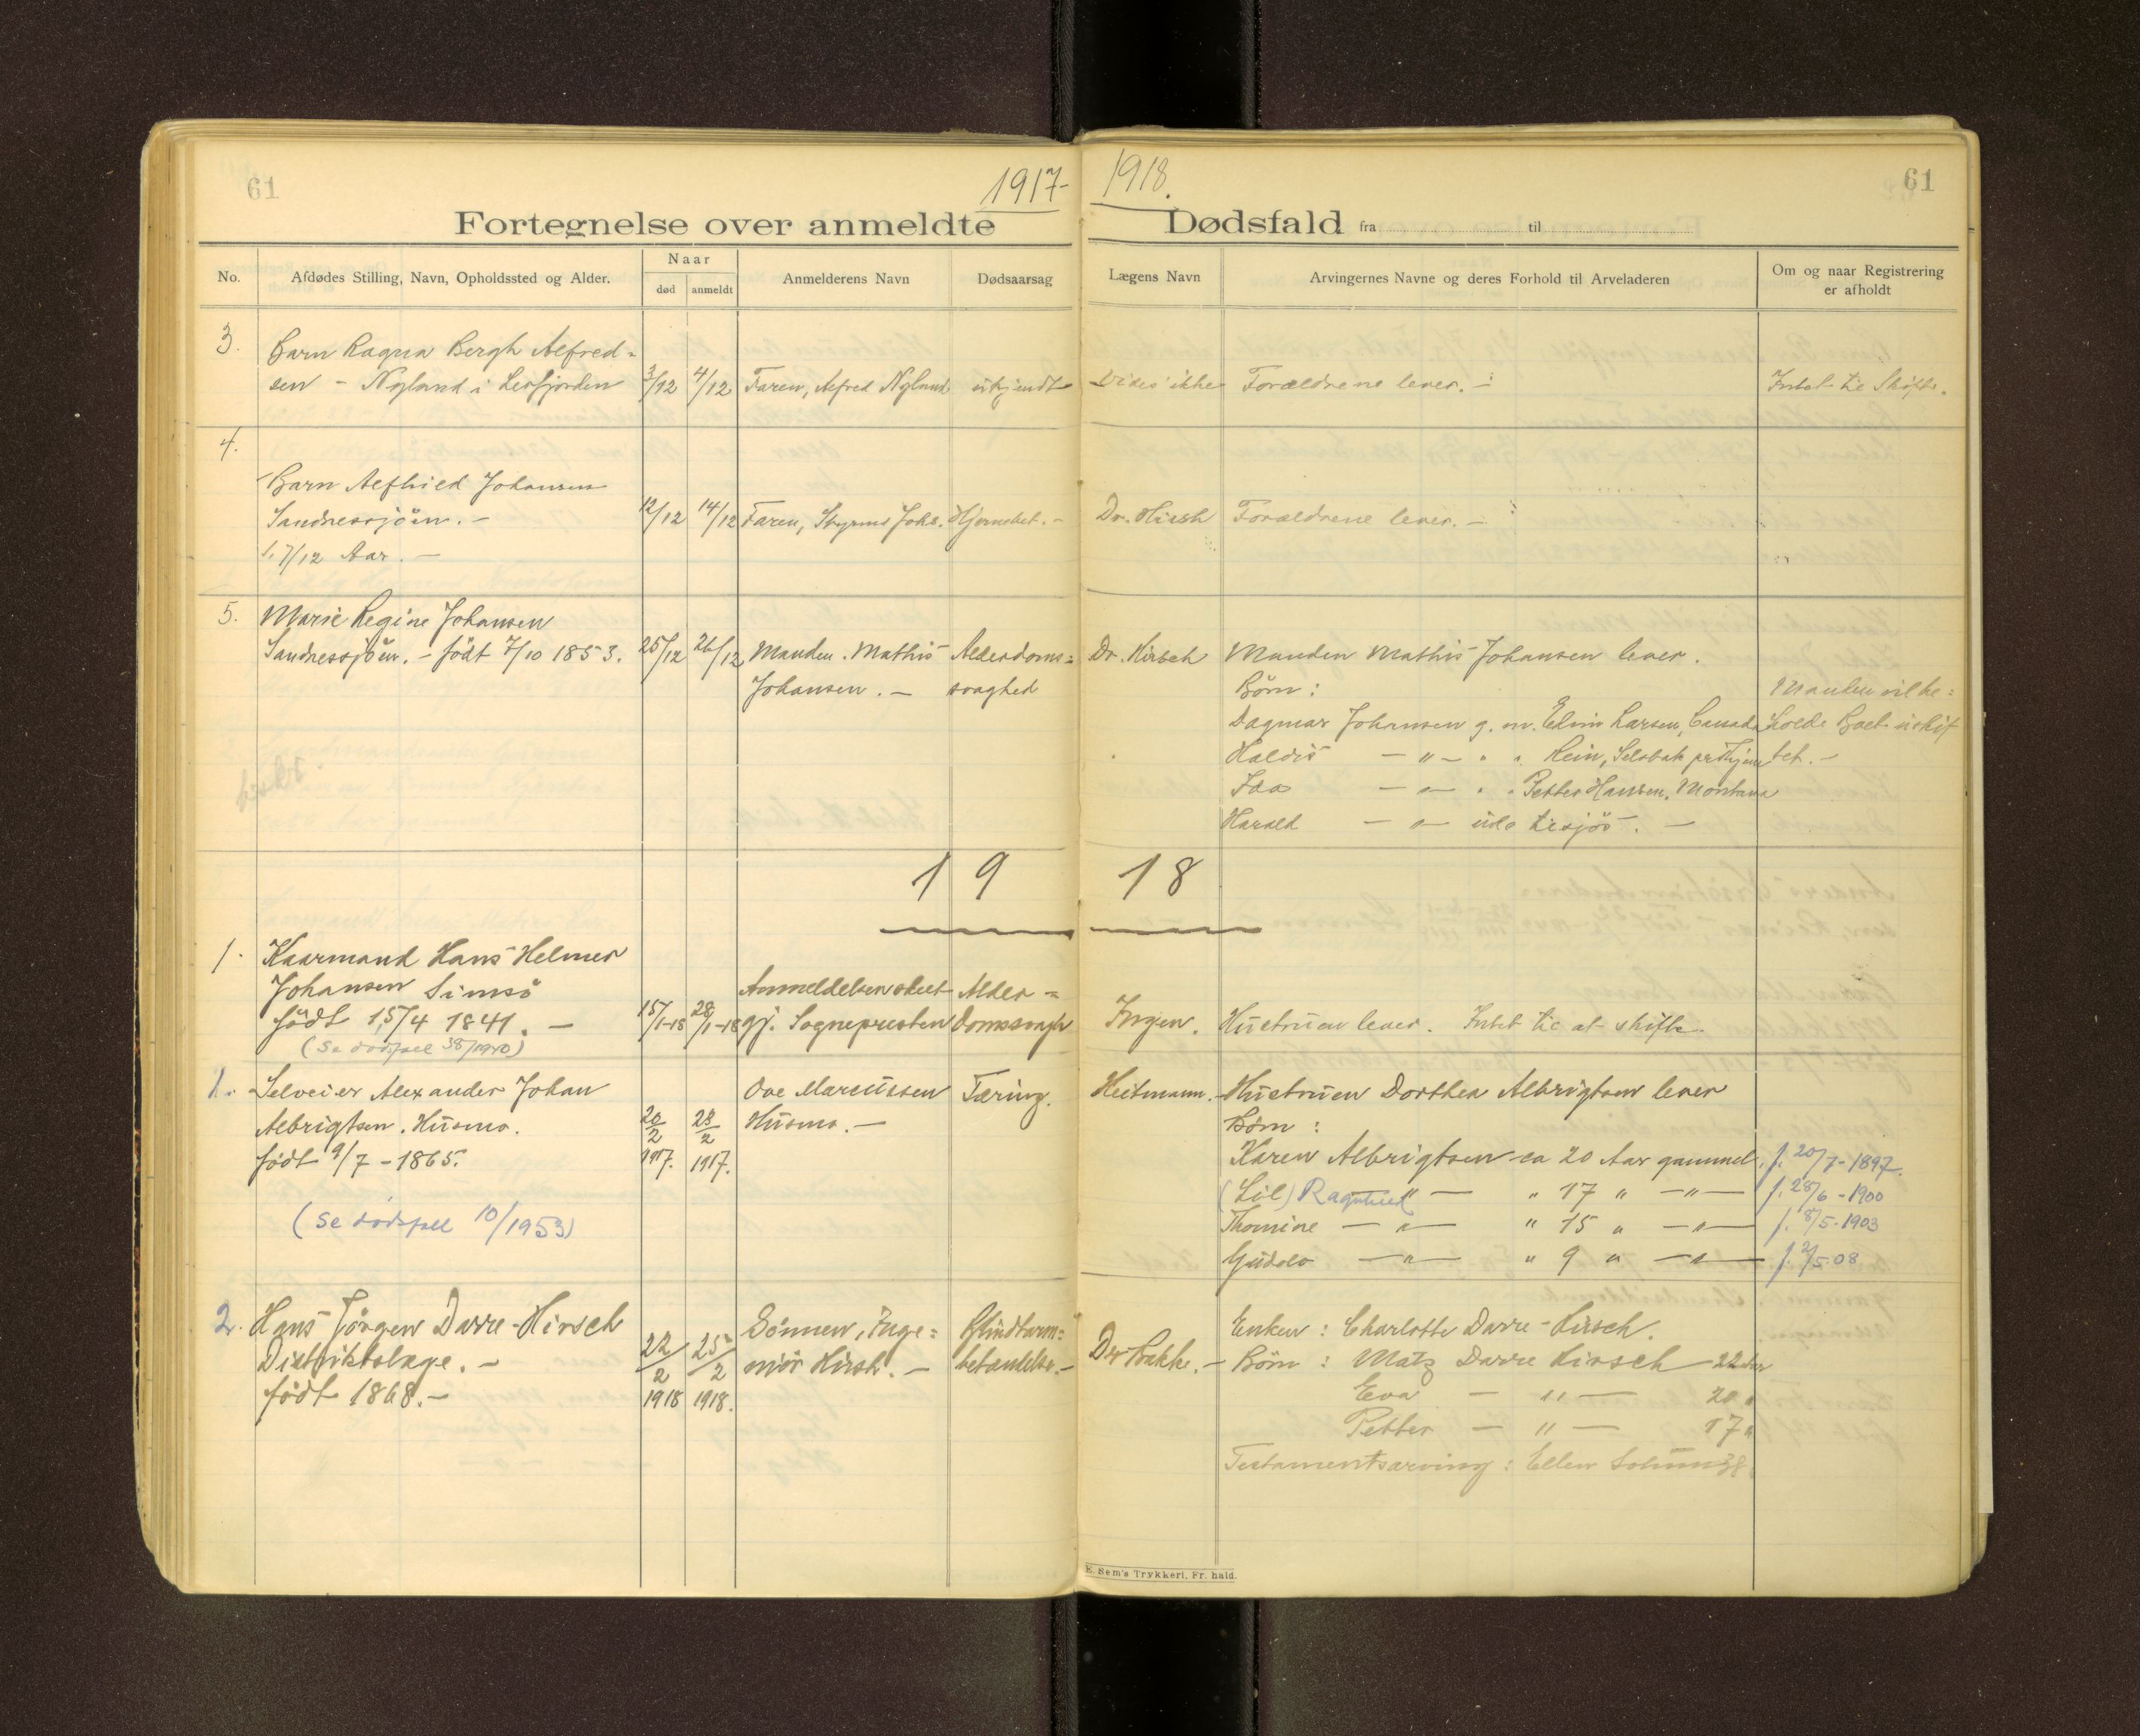 61
1917-
1918.
61
Fortegnelse over anmeldte Dødsfald fra til
No.
Afdødes Stilling, Navn, Opholdssted og Alder.
Naar
død
anmeldt
Anmelderens Navn
Dødsaarsag
Lægens Navn
Arvingernes Navne og deres Forhold til Arveladeren
Om og naar Registrering
er afholdt
3.
Barn Ragna Bergh Alfred-
sen - Nyland i Leifjorden 3/12 4/12 Faren, Alfred Nyland ukjendt Vides ikke Forældrene lever. - Intet til Skifte.
4.
Barn Alfhild Johansen
Sandnessjöen. - 12/12 14/12 Faren, Styrm. Johs. Hjernebet. - Dr. Hirsh Forældrene lever. -
1. 7/12 Aar. -
5. Marie Regine Johansen
Sandnessjöen. - födt 7/10 1853. 25/12 26/12 Manden. Mathis Alderdoms= Dr. Hirsch Manden Mathis Johansen lever.
Johansen. - svaghed Börn: Manden vil be=
Dagmar Johansen g. m. Elvin Larsen, Canada holde Boet uskif
Haldis - " - " " Rein, Selsbak pr Thjem tet. -
Ida - " - " " Petter Hansen, Montana
Harald - " - ude tilsjös. -
19 18
1. Kaarmand Hans Helmer
Johansen Simsö Anmeldelsen skeet Alder=
födt 15/4 1841. - 15/1-18 28/1-18 gj. Sognepresten domssvagh Ingen. Hustruen lever. Intet til at skifte.
(Se dödsfall 38/1940)
1. Selveier Alexander Johan Ove Marcussen Tæring. Heitmann. Hustruen Dorthea Albrigtsen lever
Albrigtsen. Husmo. 20/2 23/2 Husmo. - Börn:
födt 9/7 - 1865. 1917. 1917. Karen Albrigtsen ca 20 Aar gammel. f. 20/7-1897.
(Lil) Ragnhild - " - " 17 " - " - f. 28/6-1900
(Se dödsfall 10/1953) Thomine - " - " 15 " - " - f. 8/5-1903
Gudolv - " - " 9 " - " - f. 2/5-08
2. Hans Jörgen Darre-Hirsch Sönnen, Inge= Blindtarm= Enken: Charlotte Darre-Hirsch.
Distriktslæge. - 22/2 25/2 niör Hirsh. - betændelse. - Dr Bakke. - Börn: Matz Darre Hirsch 22 Aar
födt 1868. - 1918 1918. Eva - " - 20 "
Petter - " - 17 "
Testamentsarving: Ellen
E. Sem's Trykkeri, Fr.hald.